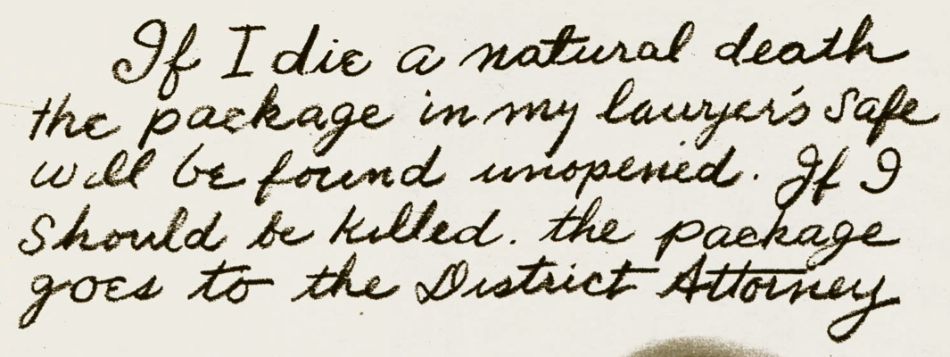 If I die a natural death
the package in my lawyer's safe
will be found unopened. If I
should be killed. the package
goes to the District Attorney